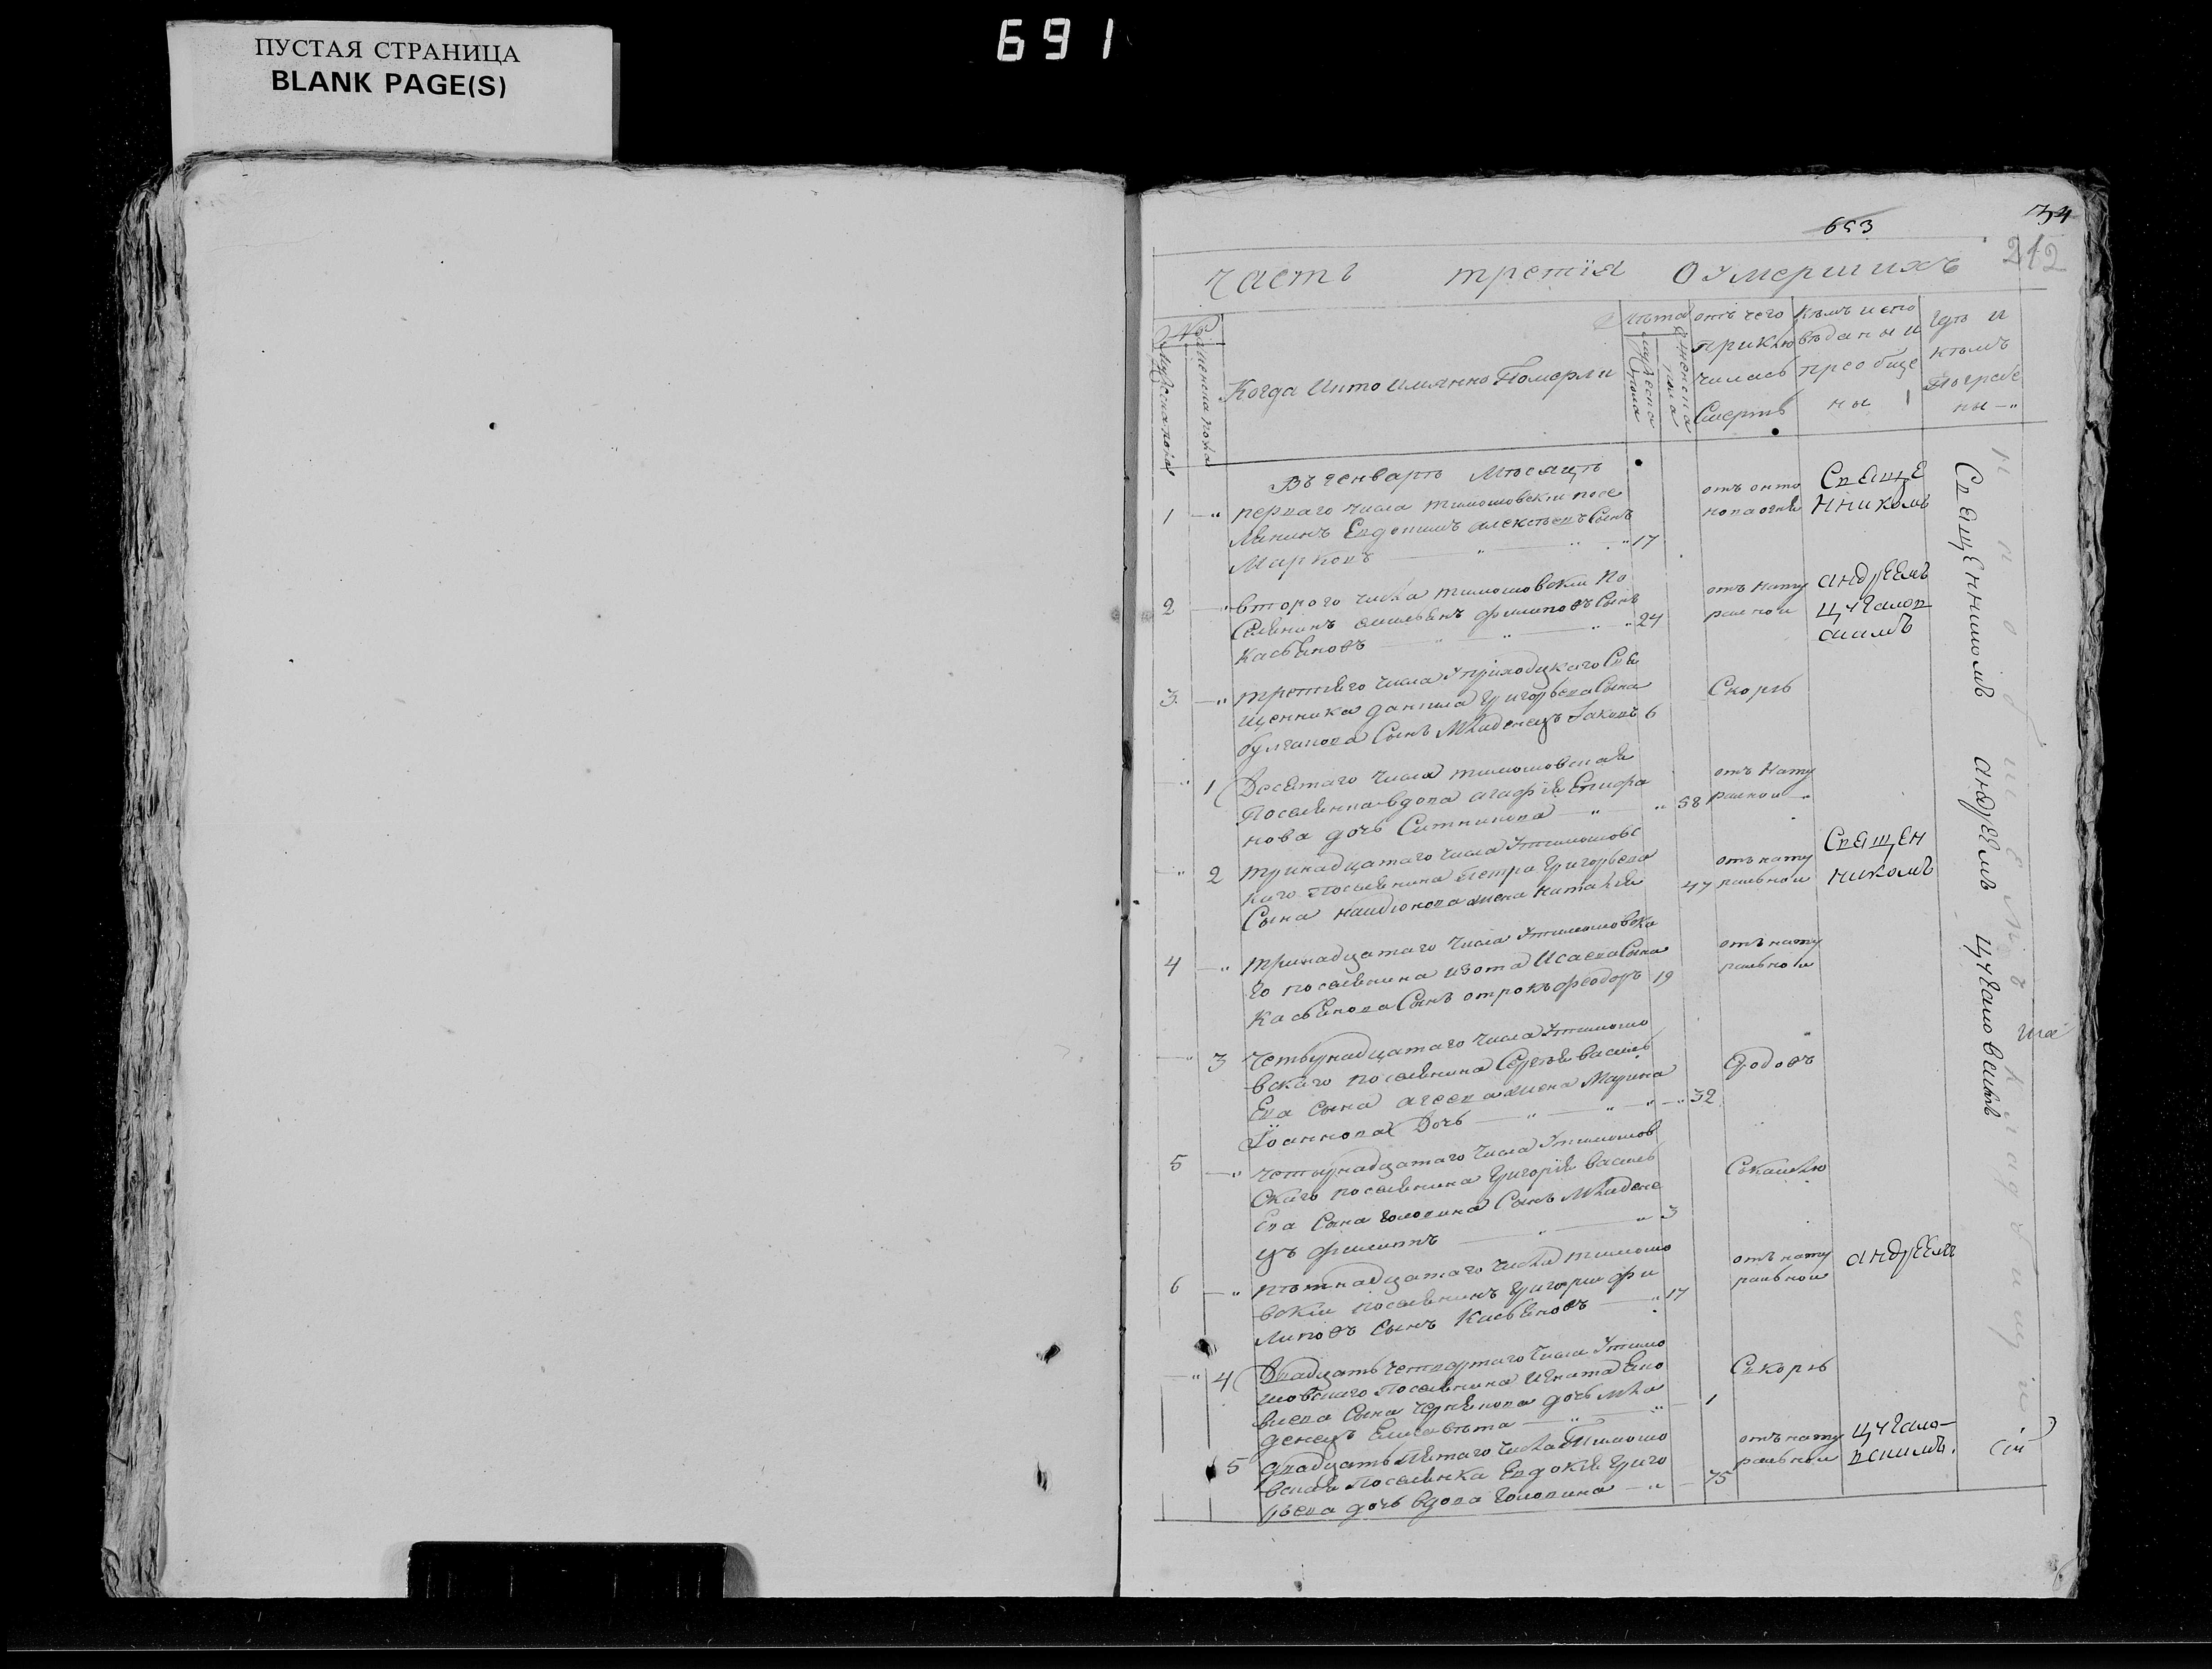 ПУСТАЯ СТРАНИЦА
BLANK PAGE(S)
691
653
34
212
Часть третїя О умерших
№
Мужеска пола
Женска пола
Когда и кто имянно Померли
Лѣта
мужеска пола
женска пола
отъ чего приклю
чилась
Смерть
Кѣмъ испо
вѣданы и
преобще
ны
Гдѣ и
кѣмъ
Погребе
ны
Въ Генварѣ Мѣсяцѣ
1 перваго числа тимошовскїи посе
лянинъ Евдокимъ алексѣевъ Сынъ
Марковъ 17
отъ онто
нова огня
Свяще
нникомъ
2 второго числа тимошовскїи По
селянинъ емельянъ филиповъ Сынъ
Касьяновъ 24
отъ нату
ралнои
андреемъ
Цугалов
скимъ
3 третьяго числа У приходскаго Свя
щенника данила Григорьева Сына
булгакова Сынъ Младенецъ Iаковъ 6
Скорѣ
1 Десятаго числа тимошовская
Поселянка вдова агафїя Епифа
нова дочь Ситникова 58
отъ Нату
ралнои
2 тринадцатаго числа У тимошовс
каго Поселянина Петра Григорьева
Сына жена наталїя 47
отъ нату
ральнои
Священ
никомъ
4 тринадцатаго числа У тимошовска
го поселянина изота Исаева Сына
Касьянова Сынъ отрокъ феодоръ 19
отъ нату
ральнои
3 четырнадцатаго числа У тимошо
вскаго поселянина Сергѣя василь
Ева Сына агеева жена Марина
Їоаннова Дочь 32
Сродовъ
5 четырнадцатаго числа У тимошов
скаго поселянина Григорїя василь
Ева Сына Головина Сынъ Младене
цъ филиппъ 3
Скашлю
6 пятнадцатаго числа тимошо
вскїи поселянинъ Григорїи фи
липовъ Сынъ Касьяновъ 17
отъ нату
ральнои
андреемъ
4 Двадцать четвертаго числа У тимо
шовскаго Поселянина Игната
Сына дочь мла
денецъ Елисавѣта 1
Скорѣ
5 двадцать пятаго числа Тимошо
вская Поселянка Евдокїя Григо
рьева дочь вдова Головина 75
отъ нату
ральнои
Цугало-
вскимъ.
Священникомъ андреемъ Цугаловскимъ